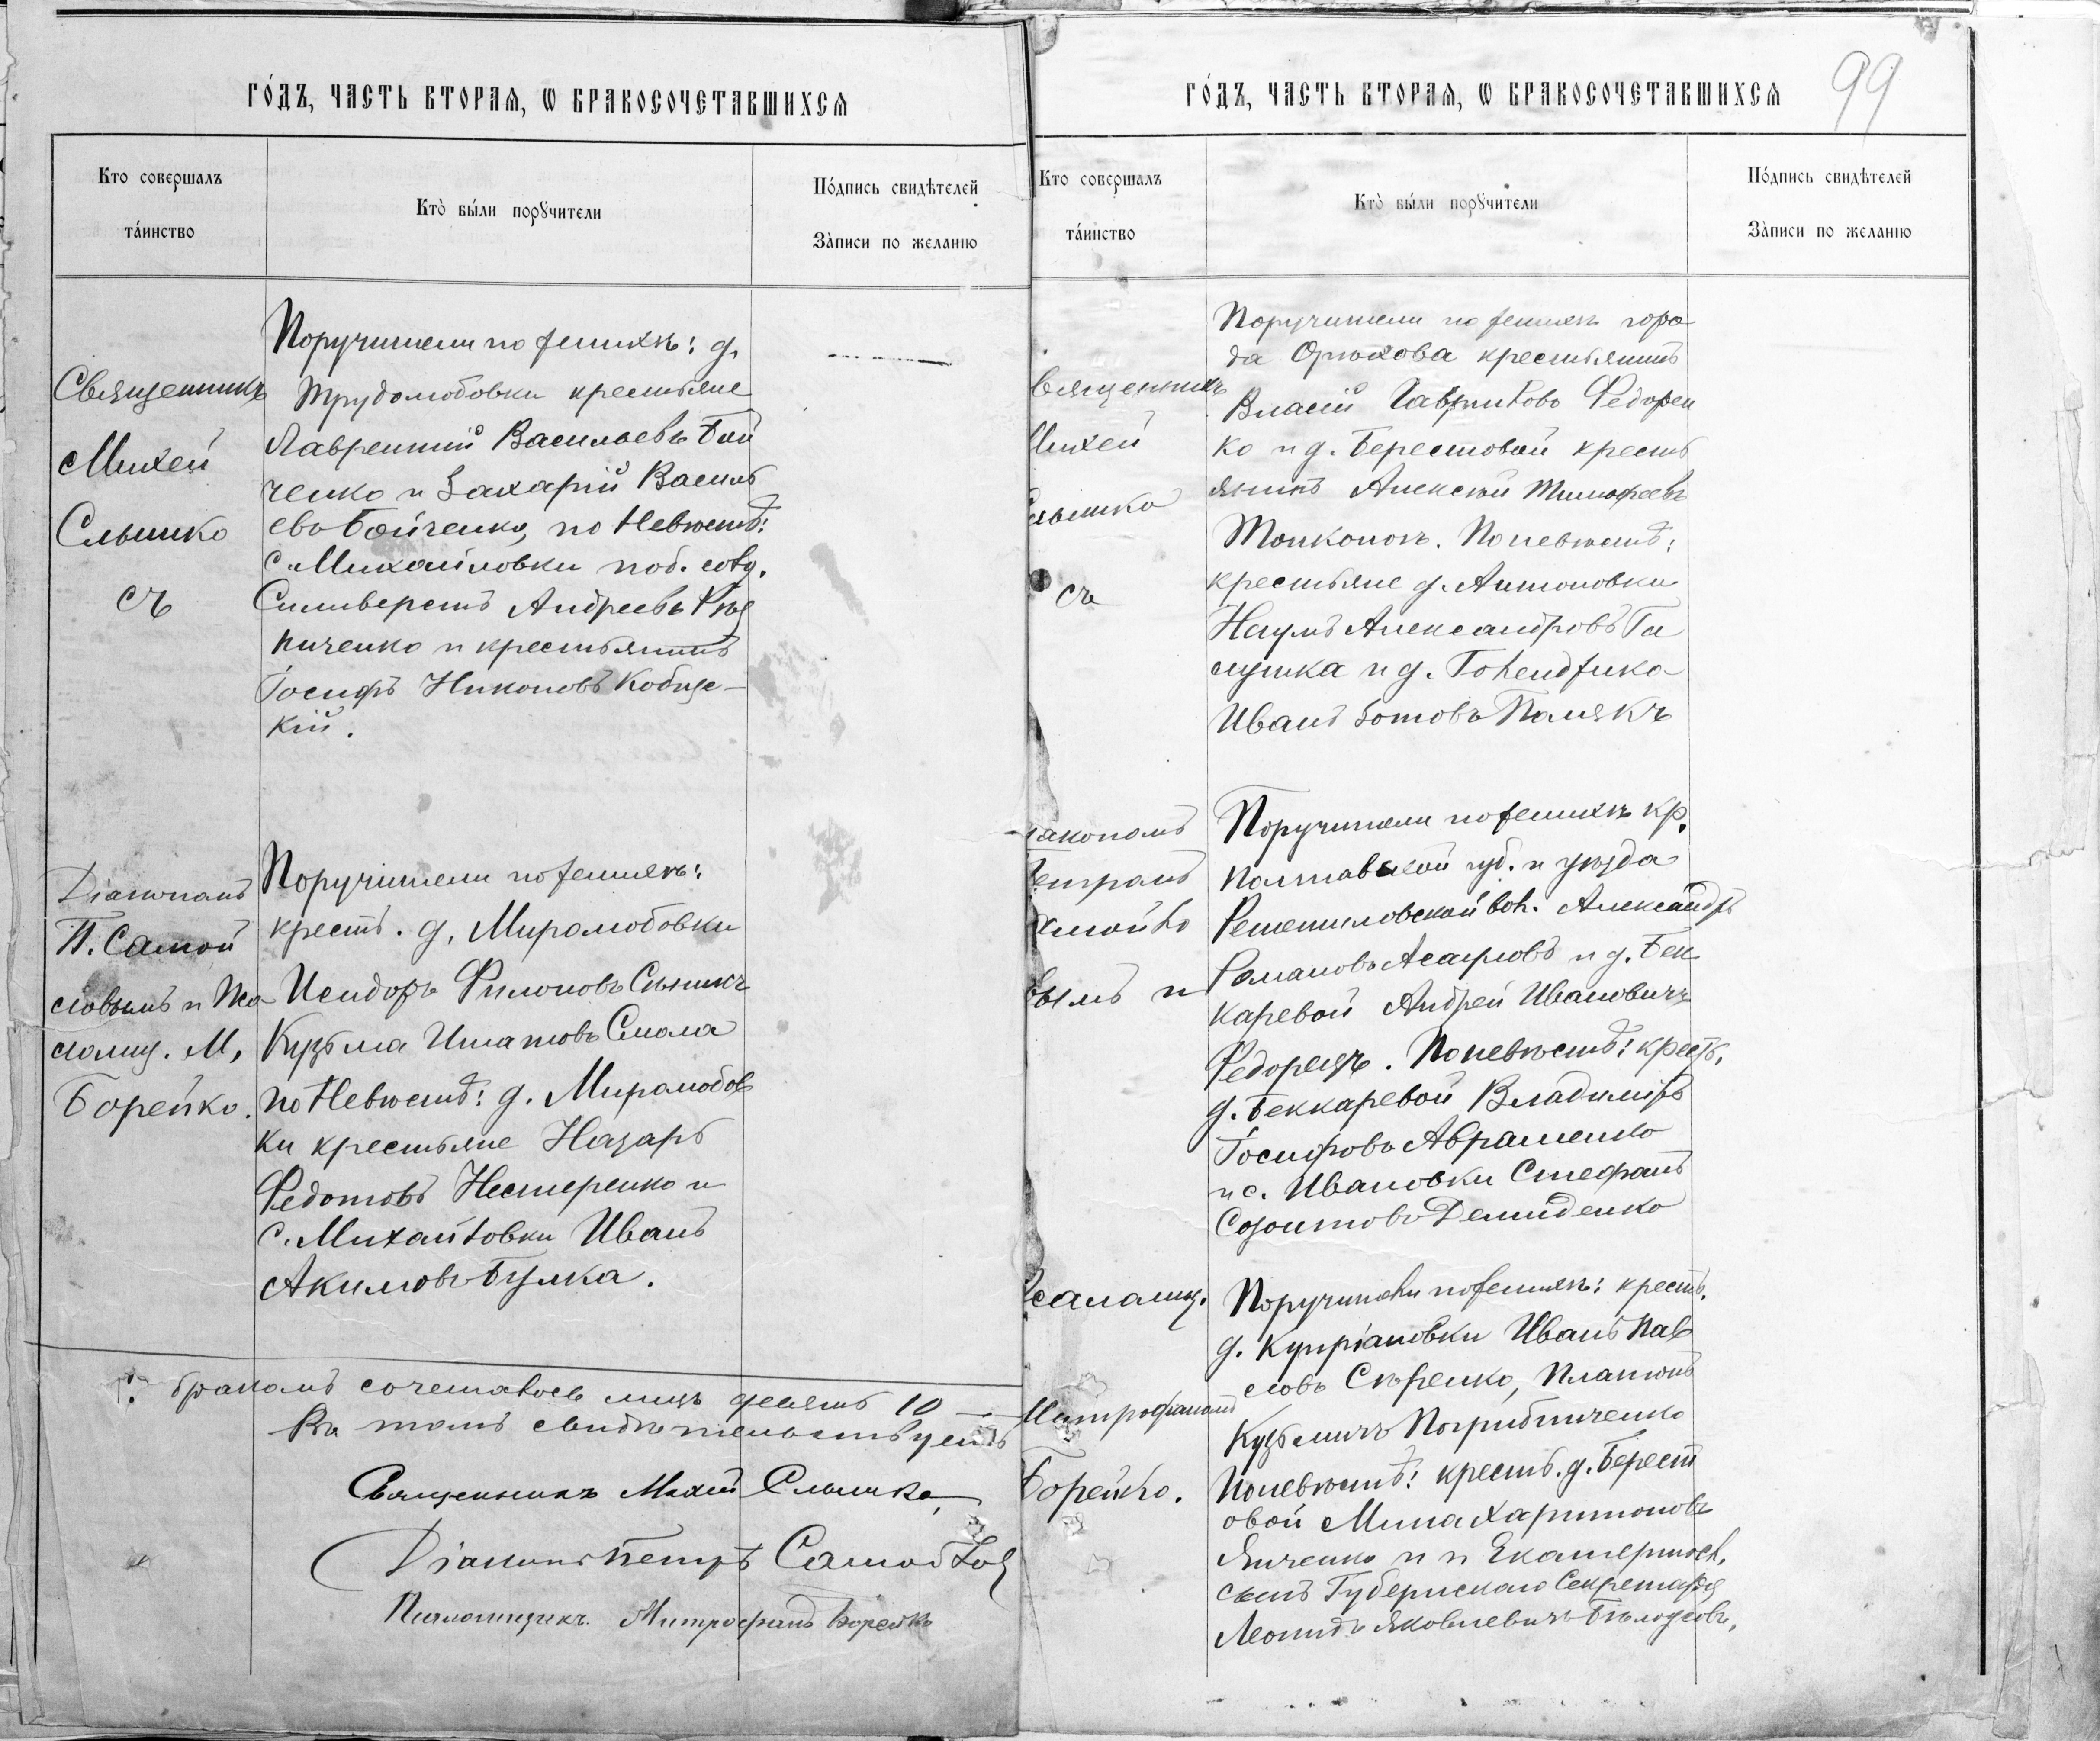 ГО́ДЪ, ЧАСТЬ ВТОРАѦ, Ѡ БРАКОСОЧЕТАВШИХСѦ
Кто совершалъ
та́инство
Кто̀ бы́ли порꙋчители
По́дпись свидѣтелей
За̀писи по желанію
Священникъ
Михей
Слынко
съ
Поручители по женихѣ: д.
Трудолюбовки крестьяне
Лаврентій Васильевъ Бой
ченко и Захарій Василь
евъ Бойченко, по невѣстѣ:
с. Михайловки под. сов.
Сильверстъ Андреевъ
ниченко и крестьянинъ
Іосифъ Никоновъ Кобице-
кій.
Діакономъ
П. Самой
ловымъ и Пса
ломщ. М.
Борейко.
Поручители по женихѣ:
крестъ. д. Миролюбовки
Исидоръ Филоновъ
Кузьма Игнатовъ Смола
по невѣстѣ: д. Миролюбов
ки крестьяне Назаръ
Федотовъ Нестеренко и
с. Михайловки Иванъ
Акимовъ Булка.
бракомъ сочеталось лицъ десять 10 —
Въ томъ свидѣтельствуемъ
Священникъ Михей Слынко
Діаконъ Петръ Самойлов
Псаломщикъ Митрофанъ Борейко
ГО́ДЪ, ЧАСТЬ ВТОРАѦ, Ѡ БРАКОСОЧЕТАВШИХСѦ
99
Кто совершалъ
та́инство
Кто̀ бы́ли порꙋчители
По́дпись свидѣтелей
За̀писи по желанію
вященникъ
Михей
Слынко
съ
Поручители по женихѣ горо
да Орѣхова крестьянинъ
Власій Гавриловъ Федорен
ко и д. Берестовой кресть
янинъ Алексѣй Тимофеевъ
Толконогъ. По невѣстѣ:
крестьяне д. Антоновки
Наумъ Александровъ Га
лушка и д.
Иванъ Зотовъ Полякъ
іакономъ
Петромъ
амойло
вымъ и
Поручители по женихѣ кр.
Полтавской губ. и уѣзда
Решетиловской вол. Александръ
Романовъ Асауловъ и д. Бек
каревой Андрей Ивановичъ
Федорецъ. По невѣстѣ: крест.
д. Беккаревой Владиміръ
Іосифовъ Авраменко
и с. Ивановки Стефанъ
Созонтовъ Демиденко
Псаломщ.
Митрофаномъ
Борейко.
Поручители по женихѣ: кресть.
д. Купріановки Иванъ Пав
ловъ Сѣренко, Платонъ
Кузьмичъ Погрибниченко
По невѣстѣ: кресть. д. Берест
овой Мина Харитоновъ
Янченко и Екатеринос.
сынъ Губернскаго Секретаря
Леонидъ Яковлевичъ Бѣлоусовъ.